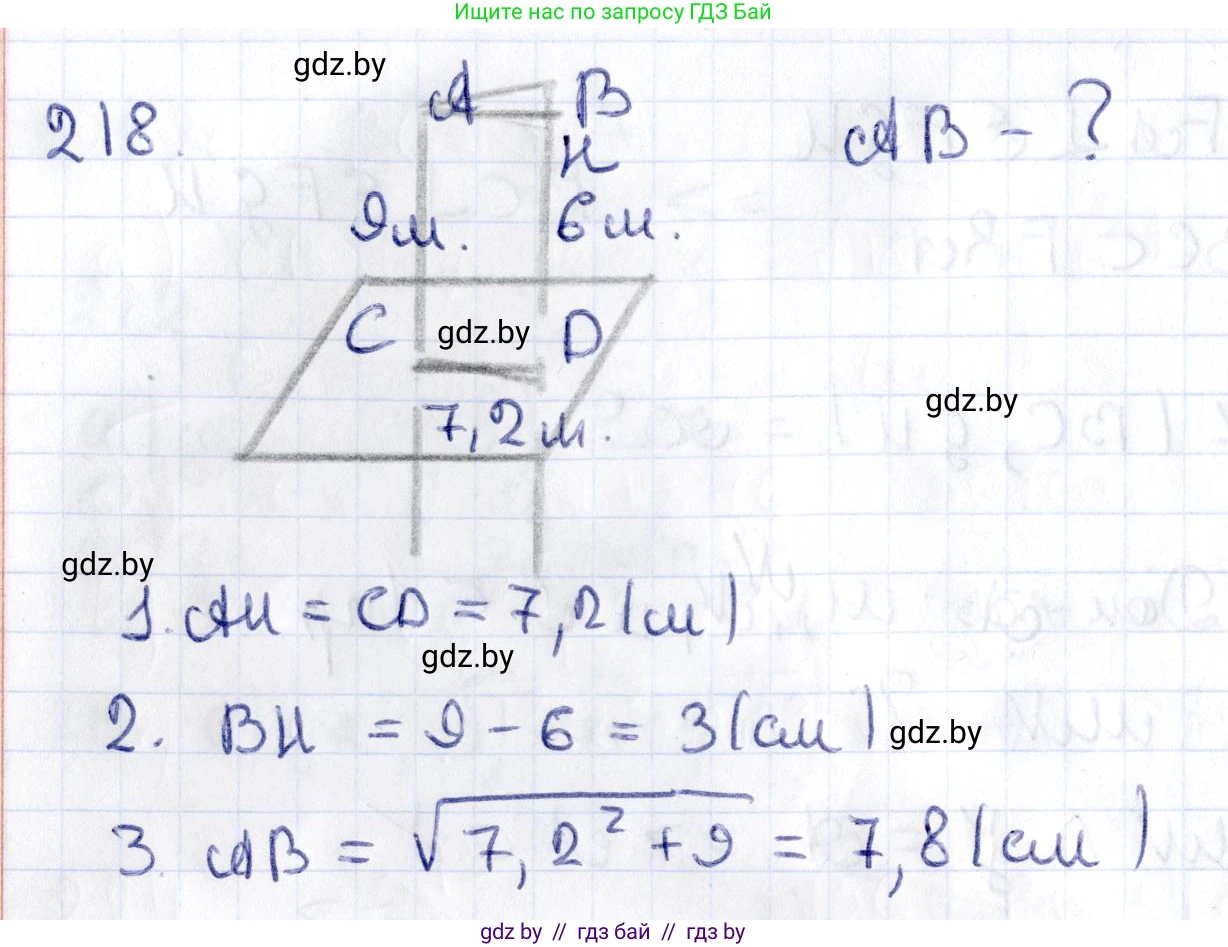 Ищите нас по запросу ГДЗ Бай
gdz.by
218.
A B
H
AB - ?
9м. 6м.
C gdz.by D
gdz.by
7,2м.
gdz.by
1. AH = CD = 7,2(см)
gdz.by
2. BH = 9 - 6 = 3(см) gdz.by
3. AB = √7,2² + 9 = 7,8(см)
gdz.by // гдз бай // гдз by